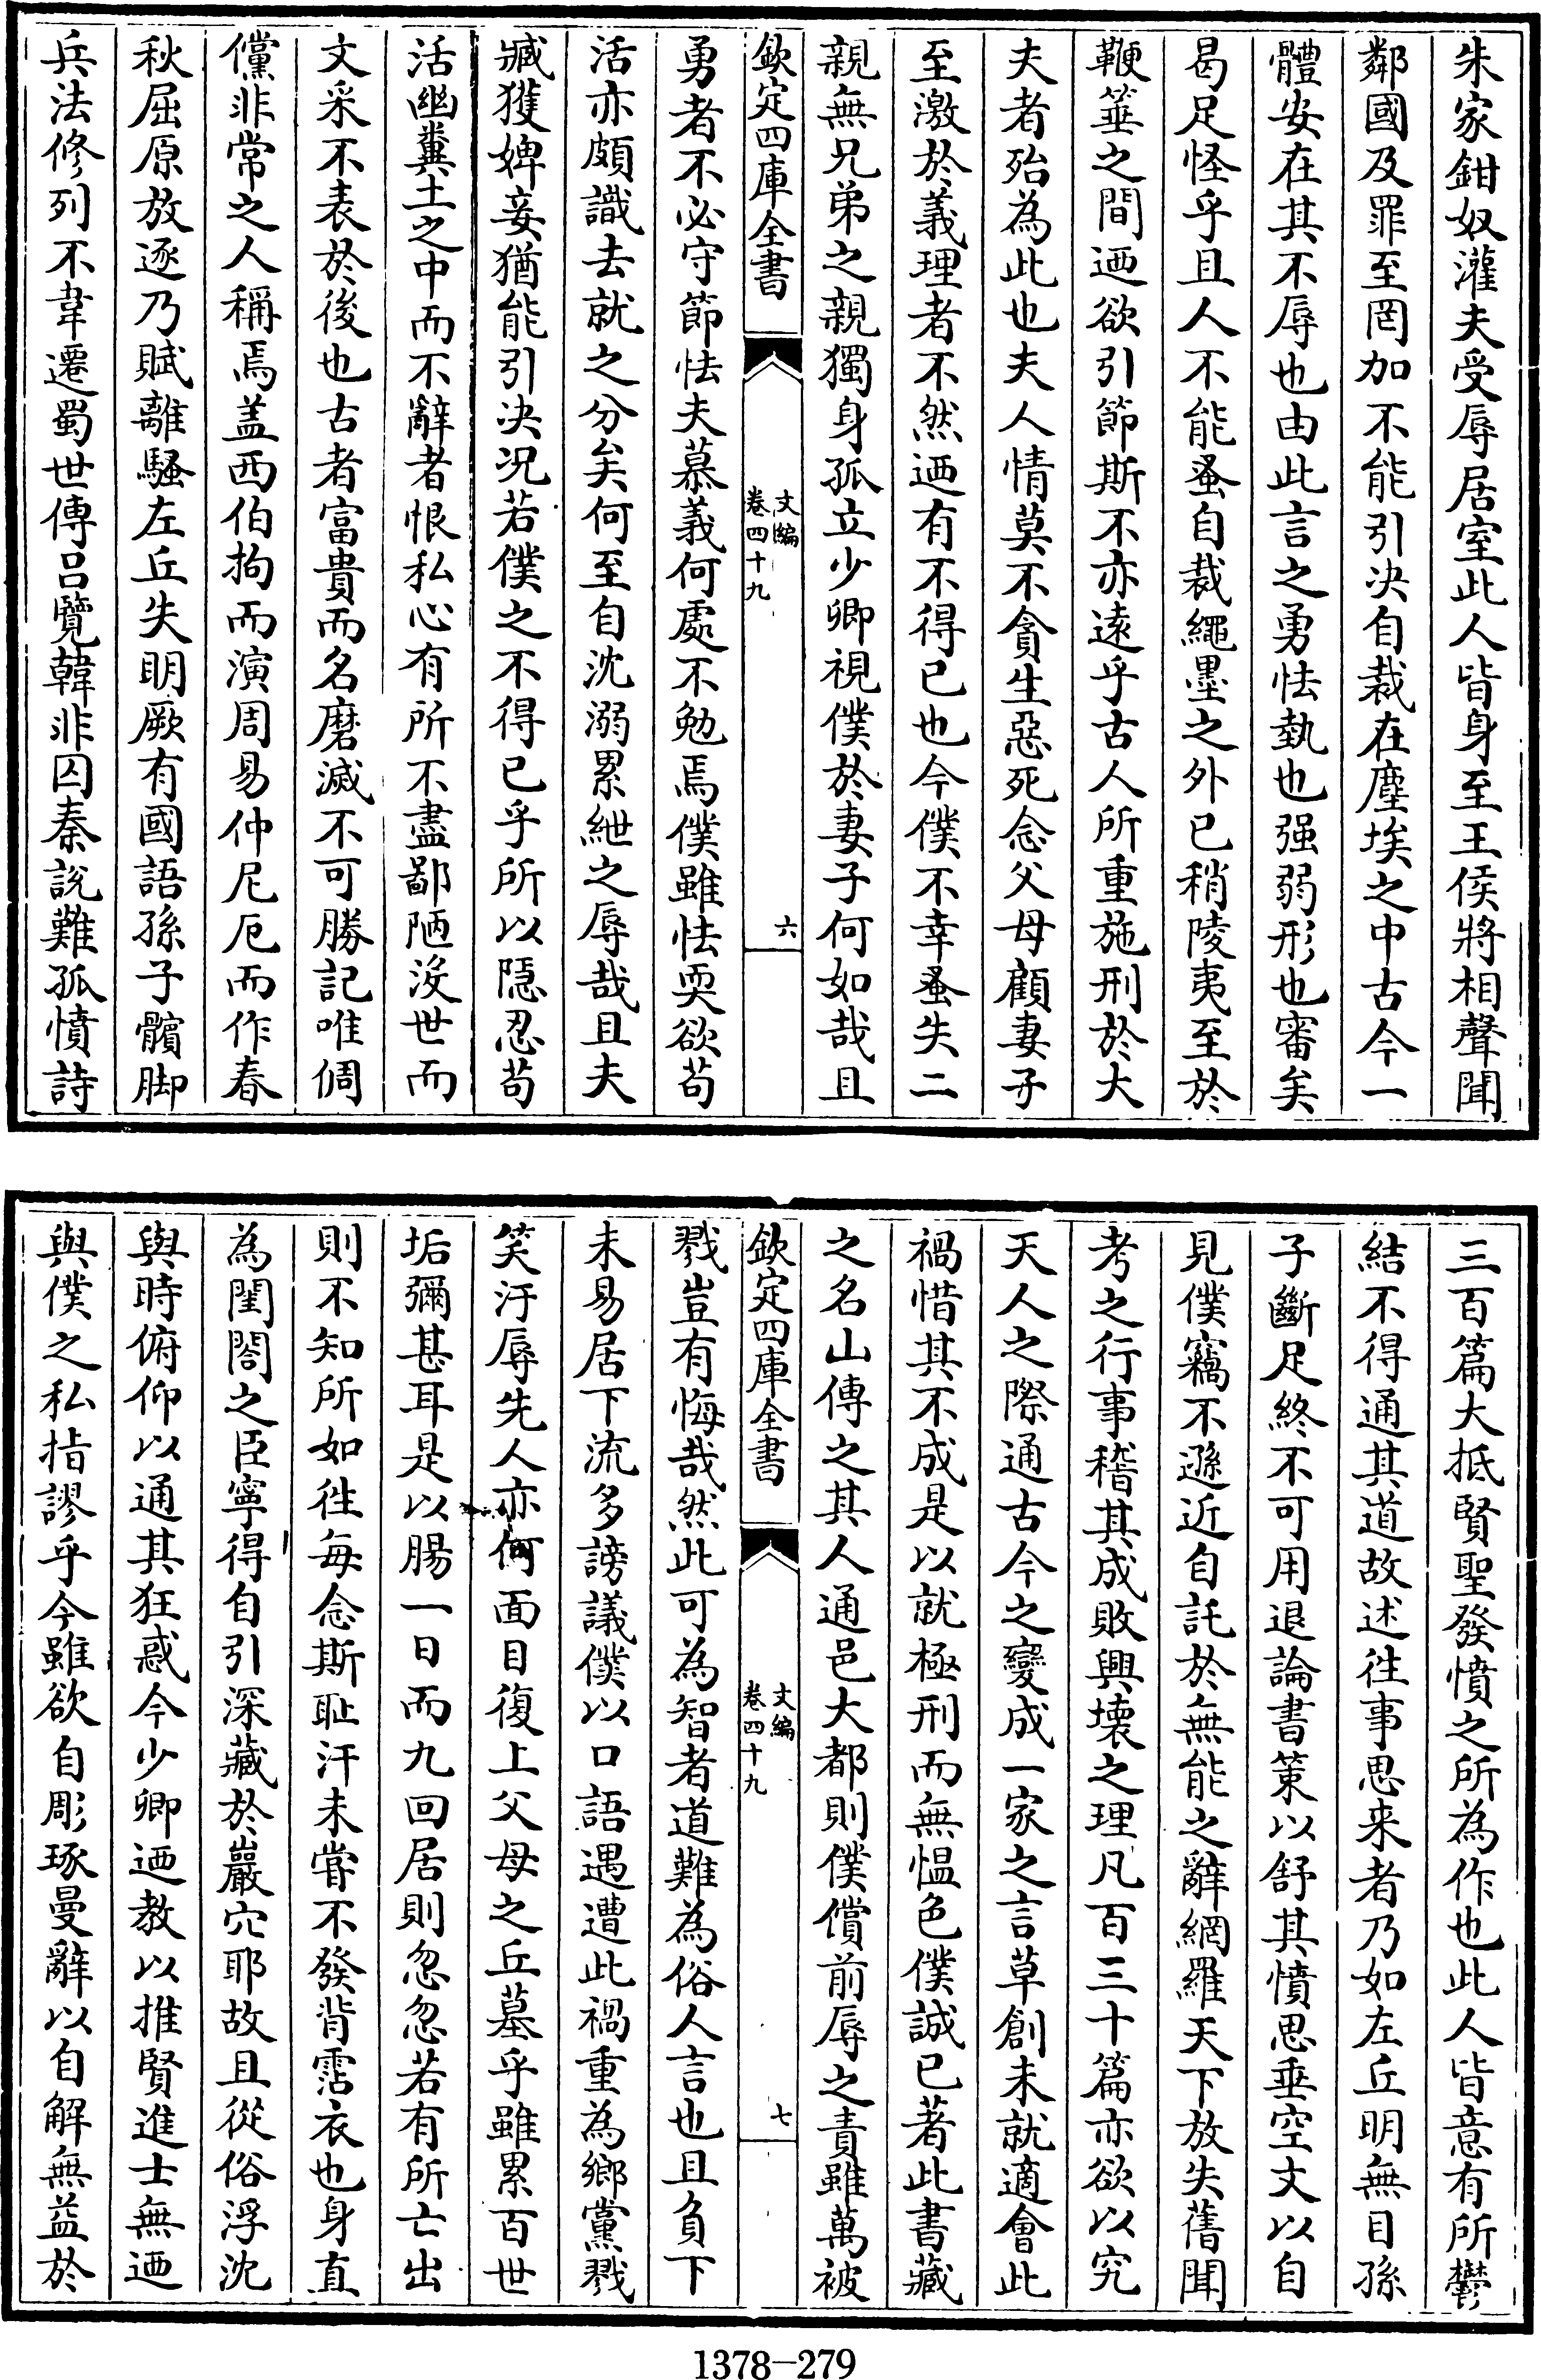 朱家鉗奴灌夫受辱居室此人皆身至王侯將相聲聞
鄰國及罪至罔加不能引決自裁在塵埃之中古今一
體安在其不辱也由此言之勇怯埶也强弱形也審矣
曷足怪乎且人不能蚤自裁繩墨之外已稍陵夷至於
鞭箠之間迺欲引節斯不亦遠乎古人所重施刑於大
夫者殆為此也夫人情莫不貪生惡死念父母顧妻子
至激於義理者不然迺有不得已也今僕不幸蚤失二
親無兄弟之親獨身孤立少卿視僕於妻子何如哉且
欽定四庫全書
文編
卷四十九
六
勇者不必守節怯夫慕義何處不勉焉僕雖怯耎欲苟
活亦頗識去就之分矣何至自沈溺累紲之辱哉且夫
臧獲婢妾猶能引决况若僕之不得已乎所以隱忍苟
活幽糞土之中而不辭者恨私心有所不盡鄙陋沒世而
文采不表於後也古者富貴而名磨滅不可勝記唯倜
儻非常之人稱焉盖西伯拘而演周易仲尼厄而作春
秋屈原放逐乃賦離騷左丘失明厥有國語孫子髕脚
兵法修列不韋遷蜀世傳呂覽韓非囚秦說難孤憤詩
三百篇大抵賢聖發憤之所為作也此人皆意有所鬱
結不得通其道故述往事思来者乃如左丘明無目孫
子斷足終不可用退論書策以舒其憤思垂空文以自
見僕竊不遜近自託於無能之辭網羅天下放失舊聞
考之行事稽其成敗興壞之理凡百三十篇亦欲以究
天人之際通古今之變成一家之言草創未就適會此
禍惜其不成是以就極刑而無愠色僕誠已著此書藏
之名山傳之其人通邑大都則僕償前辱之責雖萬被
欽定四庫全書
文編
卷四十九
七
戮豈有悔哉然此可為智者道難為俗人言也且負下
未易居下流多謗議僕以口語遇遭此禍重為鄉黨戮
笑汙辱先人亦何面目復上父母之丘墓乎雖累百世
垢彌甚耳是以腸一日而九回居則忽忽若有所亡出
則不知所如往每念斯恥汗未嘗不發背霑衣也身直
為閨閤之臣寧得自引深藏於巖穴耶故且從俗浮沈
與時俯仰以通其狂惑今少卿迺教以推賢進士無迺
與僕之私指謬乎今雖欲自彫琢曼辭以自解無益於
1378-279